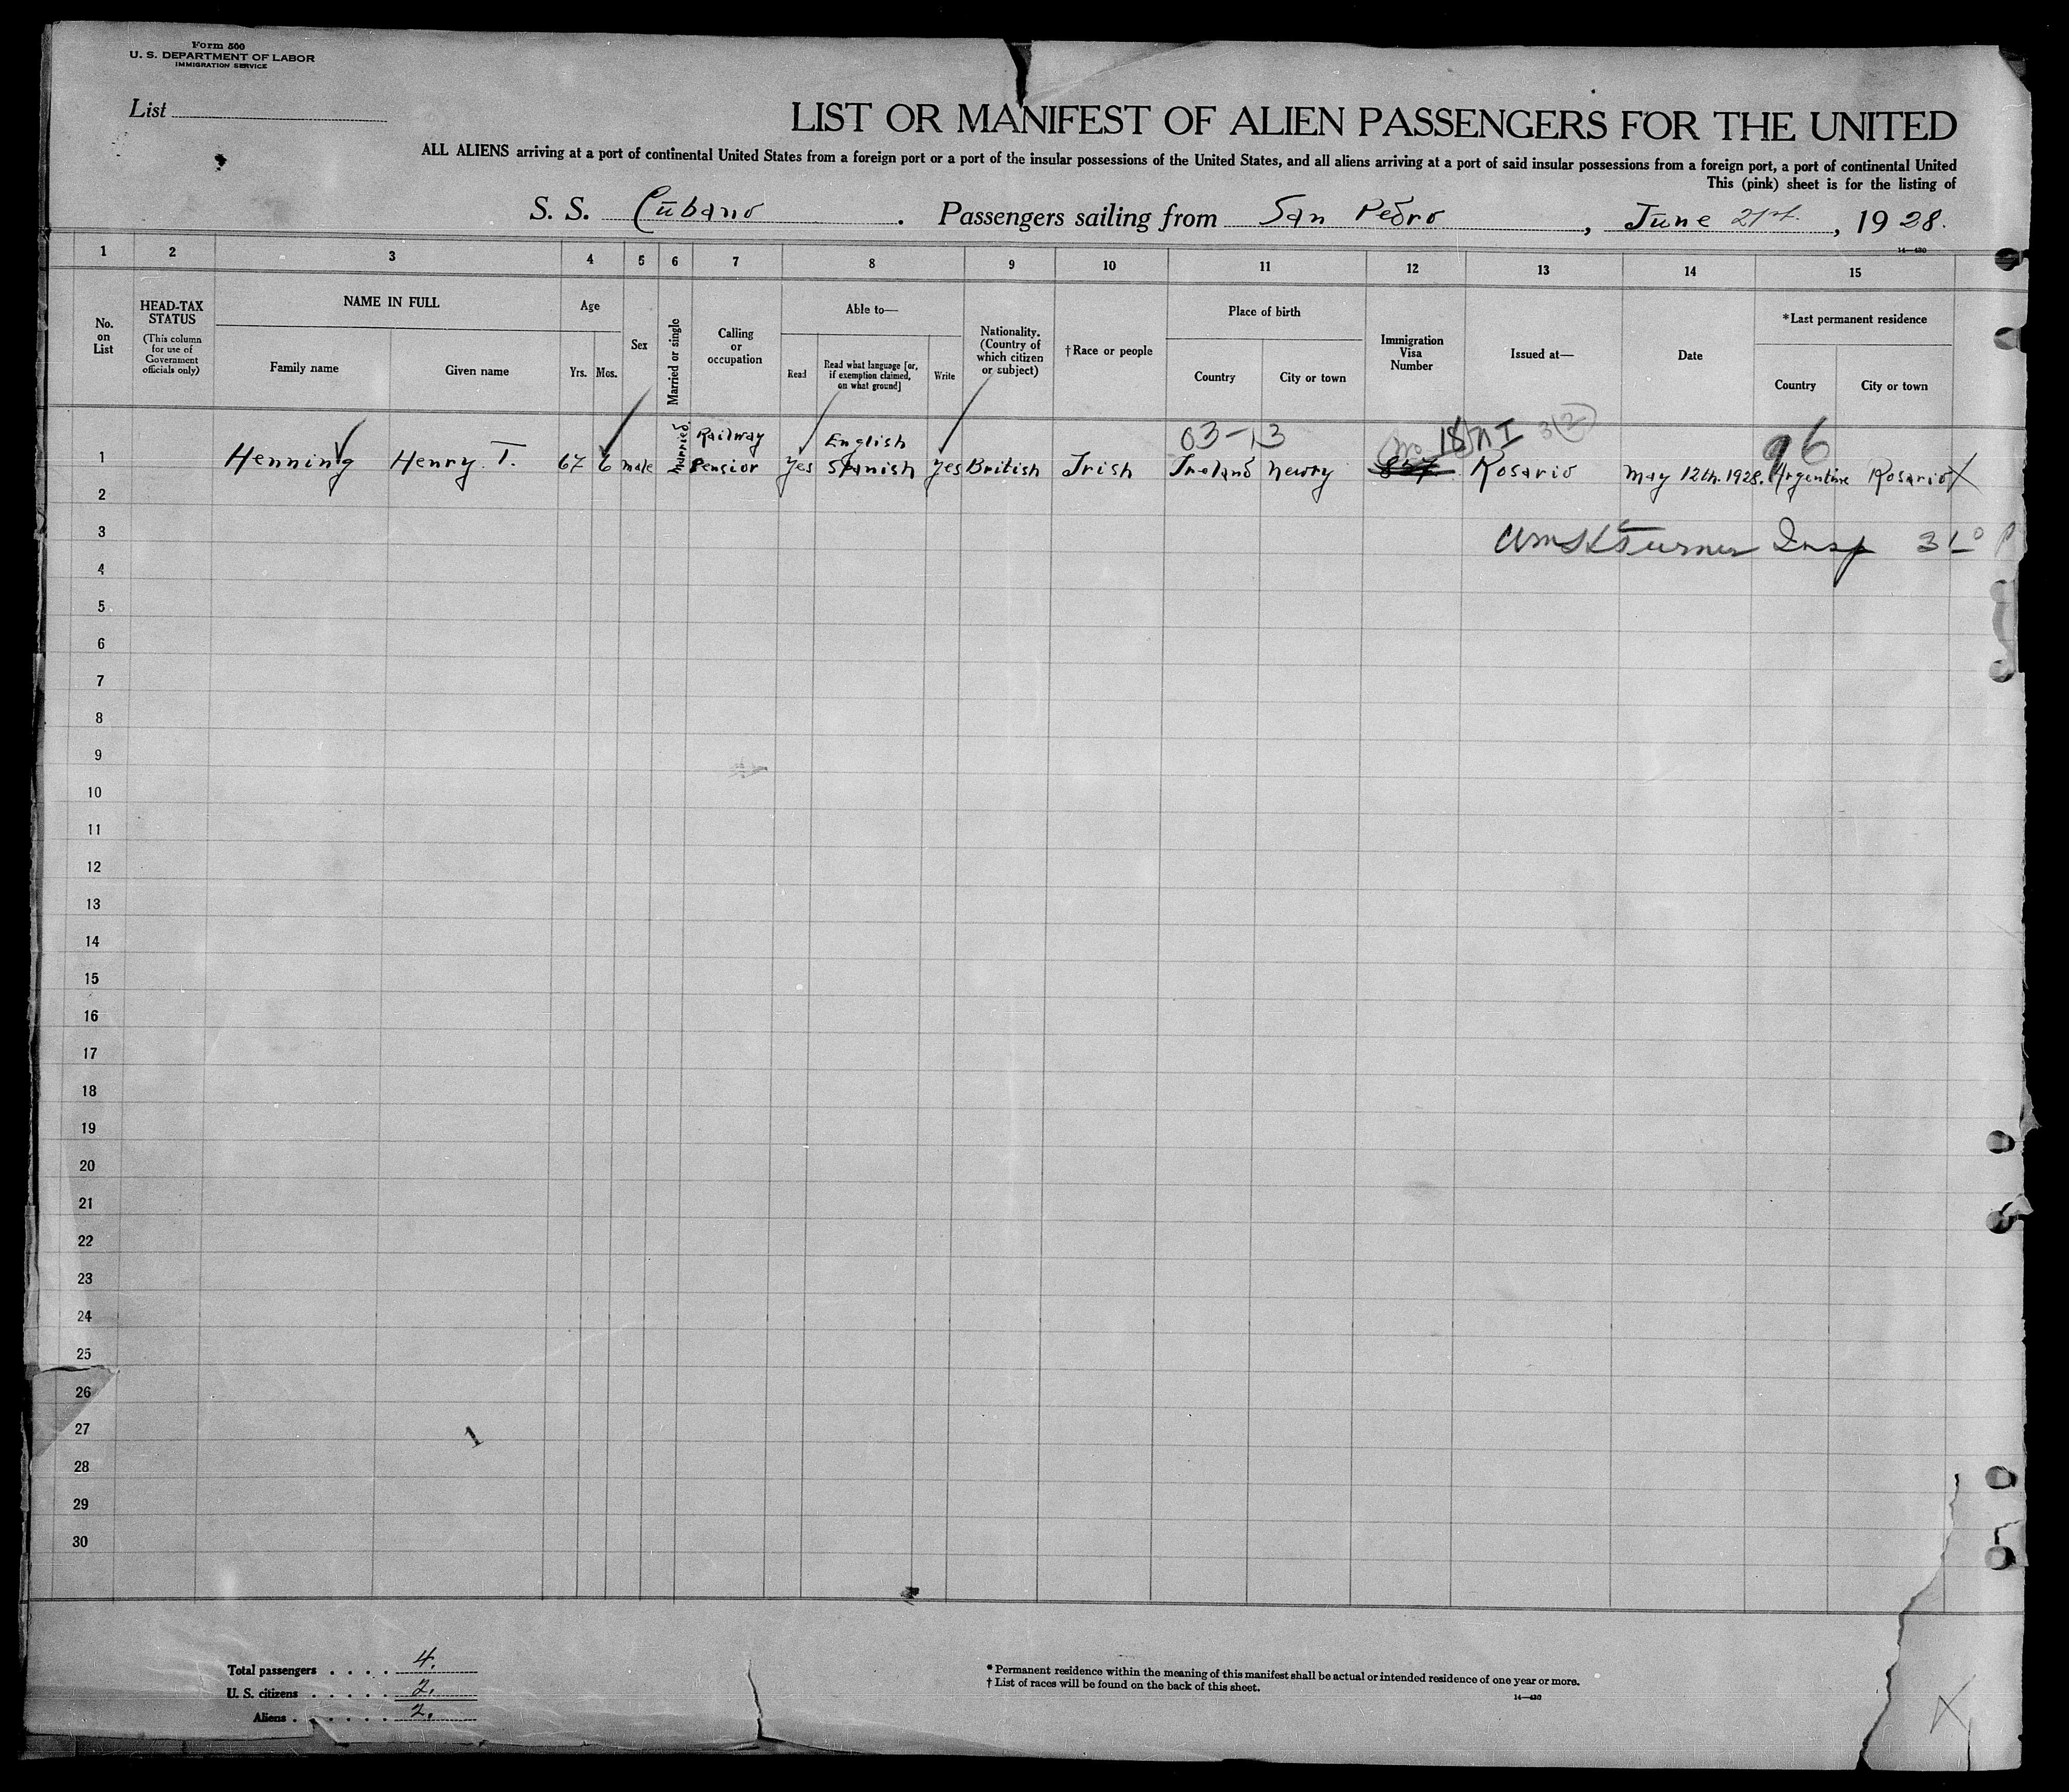 Form 500
U. S. DEPARTMENT OF LABOR
IMMIGRATION SERVICE
List
LIST OR MANIFEST OF ALIEN PASSENGERS FOR THE UNITED
ALL ALIENS arriving at a port of continental United States from a foreign port or a port of the insular possessions of the United States, and all aliens arriving at a port of said insular possessions from a foreign port, a port of continental United
This (pink) sheet is for the listing of
S. S. Cubano. Passengers sailing from San Pedro, June 21st., 1928.
14—430
1 2 3 4 5 6 7 8 9 10 11 12 13 14 15
No. on List
HEAD-TAX STATUS
(This column for use of Government officials only)
NAME IN FULL
Family name
Given name
Age
Yrs.
Mos.
Sex
Married or single
Calling or occupation
Able to—
Read
Read what language [or, if exemption claimed, on what ground]
Write
Nationality. (Country of which citizen or subject)
†Race or people
Place of birth
Country
City or town
Immigration Visa Number
Issued at—
Date
*Last permanent residence
Country
City or town
Railway English 03-13 96
1 Henning Henry. T. 67 6 male Married yes Spanish yes British Irish Ireland Newry Rosario May 12th. 1928. Argentine Rosario X
2
3 Turner Insp
4
5
6
7
8
9
10
11
12
13
14
15
16
17
18
19
20
21
22
23
24
25
26
27
28
29
30
Total passengers . . . . 4.
U. S. citizens . . . . . 2.
Aliens . . . . . . 2.
* Permanent residence within the meaning of this manifest shall be actual or intended residence of one year or more.
† List of races will be found on the back of this sheet.
14—430
X